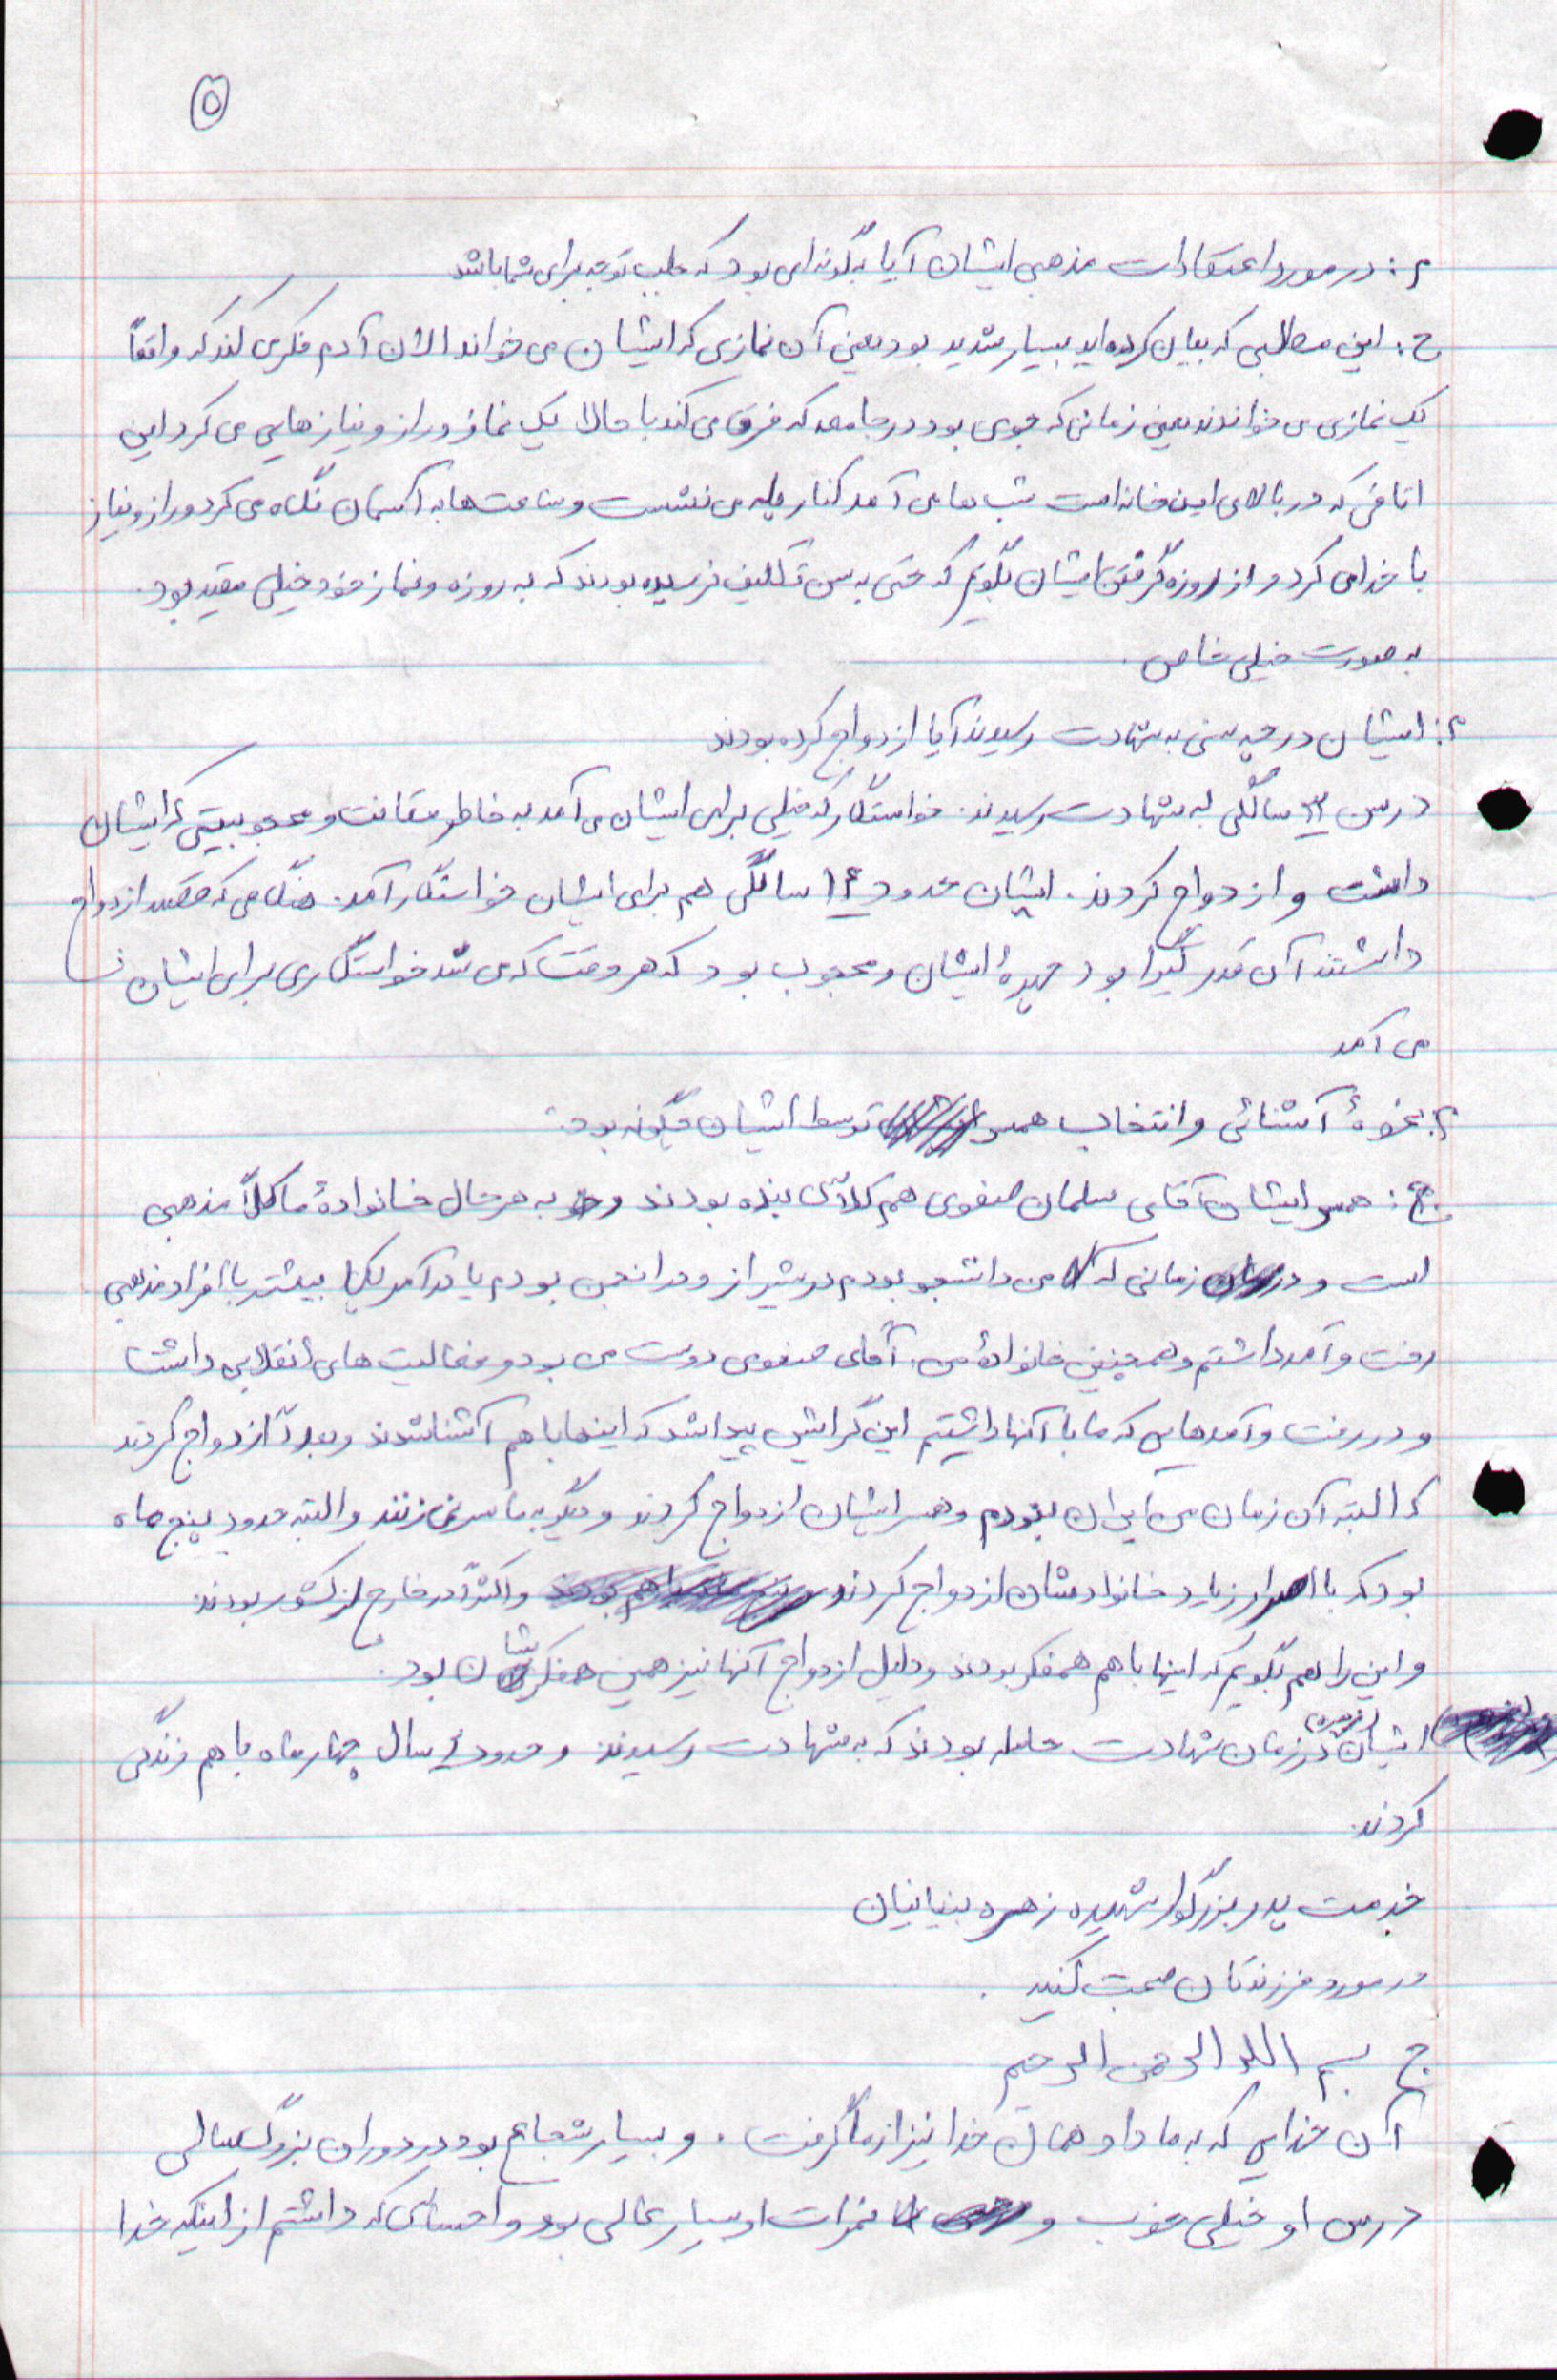 ۵
؟: در مورد اعتقادات مذهبی ایشان آیا بگونه‌ای بود که جلب توجه برای شما باشد
ج: این مطالبی که بیان کرده‌اید بسیار شدید بود یعنی آن نمازی که ایشان می خواند الان آدم فکر می کند که واقعاً
یک نمازی می خواندند یعنی زمانی که جوی بود در جامعه که فرق می کند با حالا یک نماز و راز و نیازهایی می کرد این
اتاقی که در بالای این خانه است شب ها می آمد کنار پله می نشست و ساعت ها به آسمان نگاه می کرد و راز و نیاز
با خدا می کرد و از روزه گرفتن ایشان بگویم که حتی به سن تکلیف نرسیده بودند که به روزه و نماز خود خیلی مقید بود.
به صورت خیلی خاص.
؟: ایشان در چه سنی به شهادت رسیدند آیا ازدواج کرده بودند
در سن سالگی به شهادت رسیدند. خواستگار که خیلی برای ایشان می آمد به خاطر متانت و محبوبیتی که ایشان
داشت و ازدواج کردند. ایشان حدود ۱۴ سالگی هم برای ایشان خواستگار آمد. هنگامی که قصد ازدواج
داشتند آن قدر گیرا بود چهرهٔ ایشان و محجوب بود که هر وقت که می شد خواستگاری برای ایشان
می آمد
؟: نحوهٔ آشنائی و انتخاب همسر توسط ایشان چگونه بود؟
ج: همسر ایشان آقای سلمان صفوی هم کلاسی بنده بودند و به هر حال خانوادهٔ ما کلاً مذهبی
است و در زمانی که من دانشجو بودم در شیراز و در انجمن بودم یا در آمریکا بیشتر با افراد مذهبی
رفت و آمد داشتم و همچنین خانوادهٔ من. آقای صفوی دوست من بود و فعالیت های انقلابی داشت
و در رفت و آمدهایی که ما با آنها داشتیم این گرایش پیدا شد که اینها با هم آشنا شدند و بعداً ازدواج کردند
که البته آن زمان من ایران نبودم و همسر ایشان ازدواج کردند و دیگر به ما سر نمی زنند و البته حدود پنج ماه
بود که با اصرار زیاد خانواده‌شان ازدواج کردند و اکثراً در خارج از کشور بودند
و این را هم بگویم که اینها با هم همفکر بودند و دلیل ازدواج آنها نیز همین همفکریشان بود.
ایشان در زمان شهادت حامله بودند که به شهادت رسیدند و حدود سال چهار ماه با هم زندگی
کردند.
خدمت پدر بزرگوار شهیده زهره بنیانیان
در مورد فرزندتان صحبت کنید.
ج بسم الله الرحمن الرحیم
آن خدایی که به ما داد همان خدا نیز از ما گرفت. و بسیار شجاع بود در دوران بزرگسالی
درس او خیلی خوب و نمرات او بسیار عالی بود و احساسی که داشتم از اینکه خدا